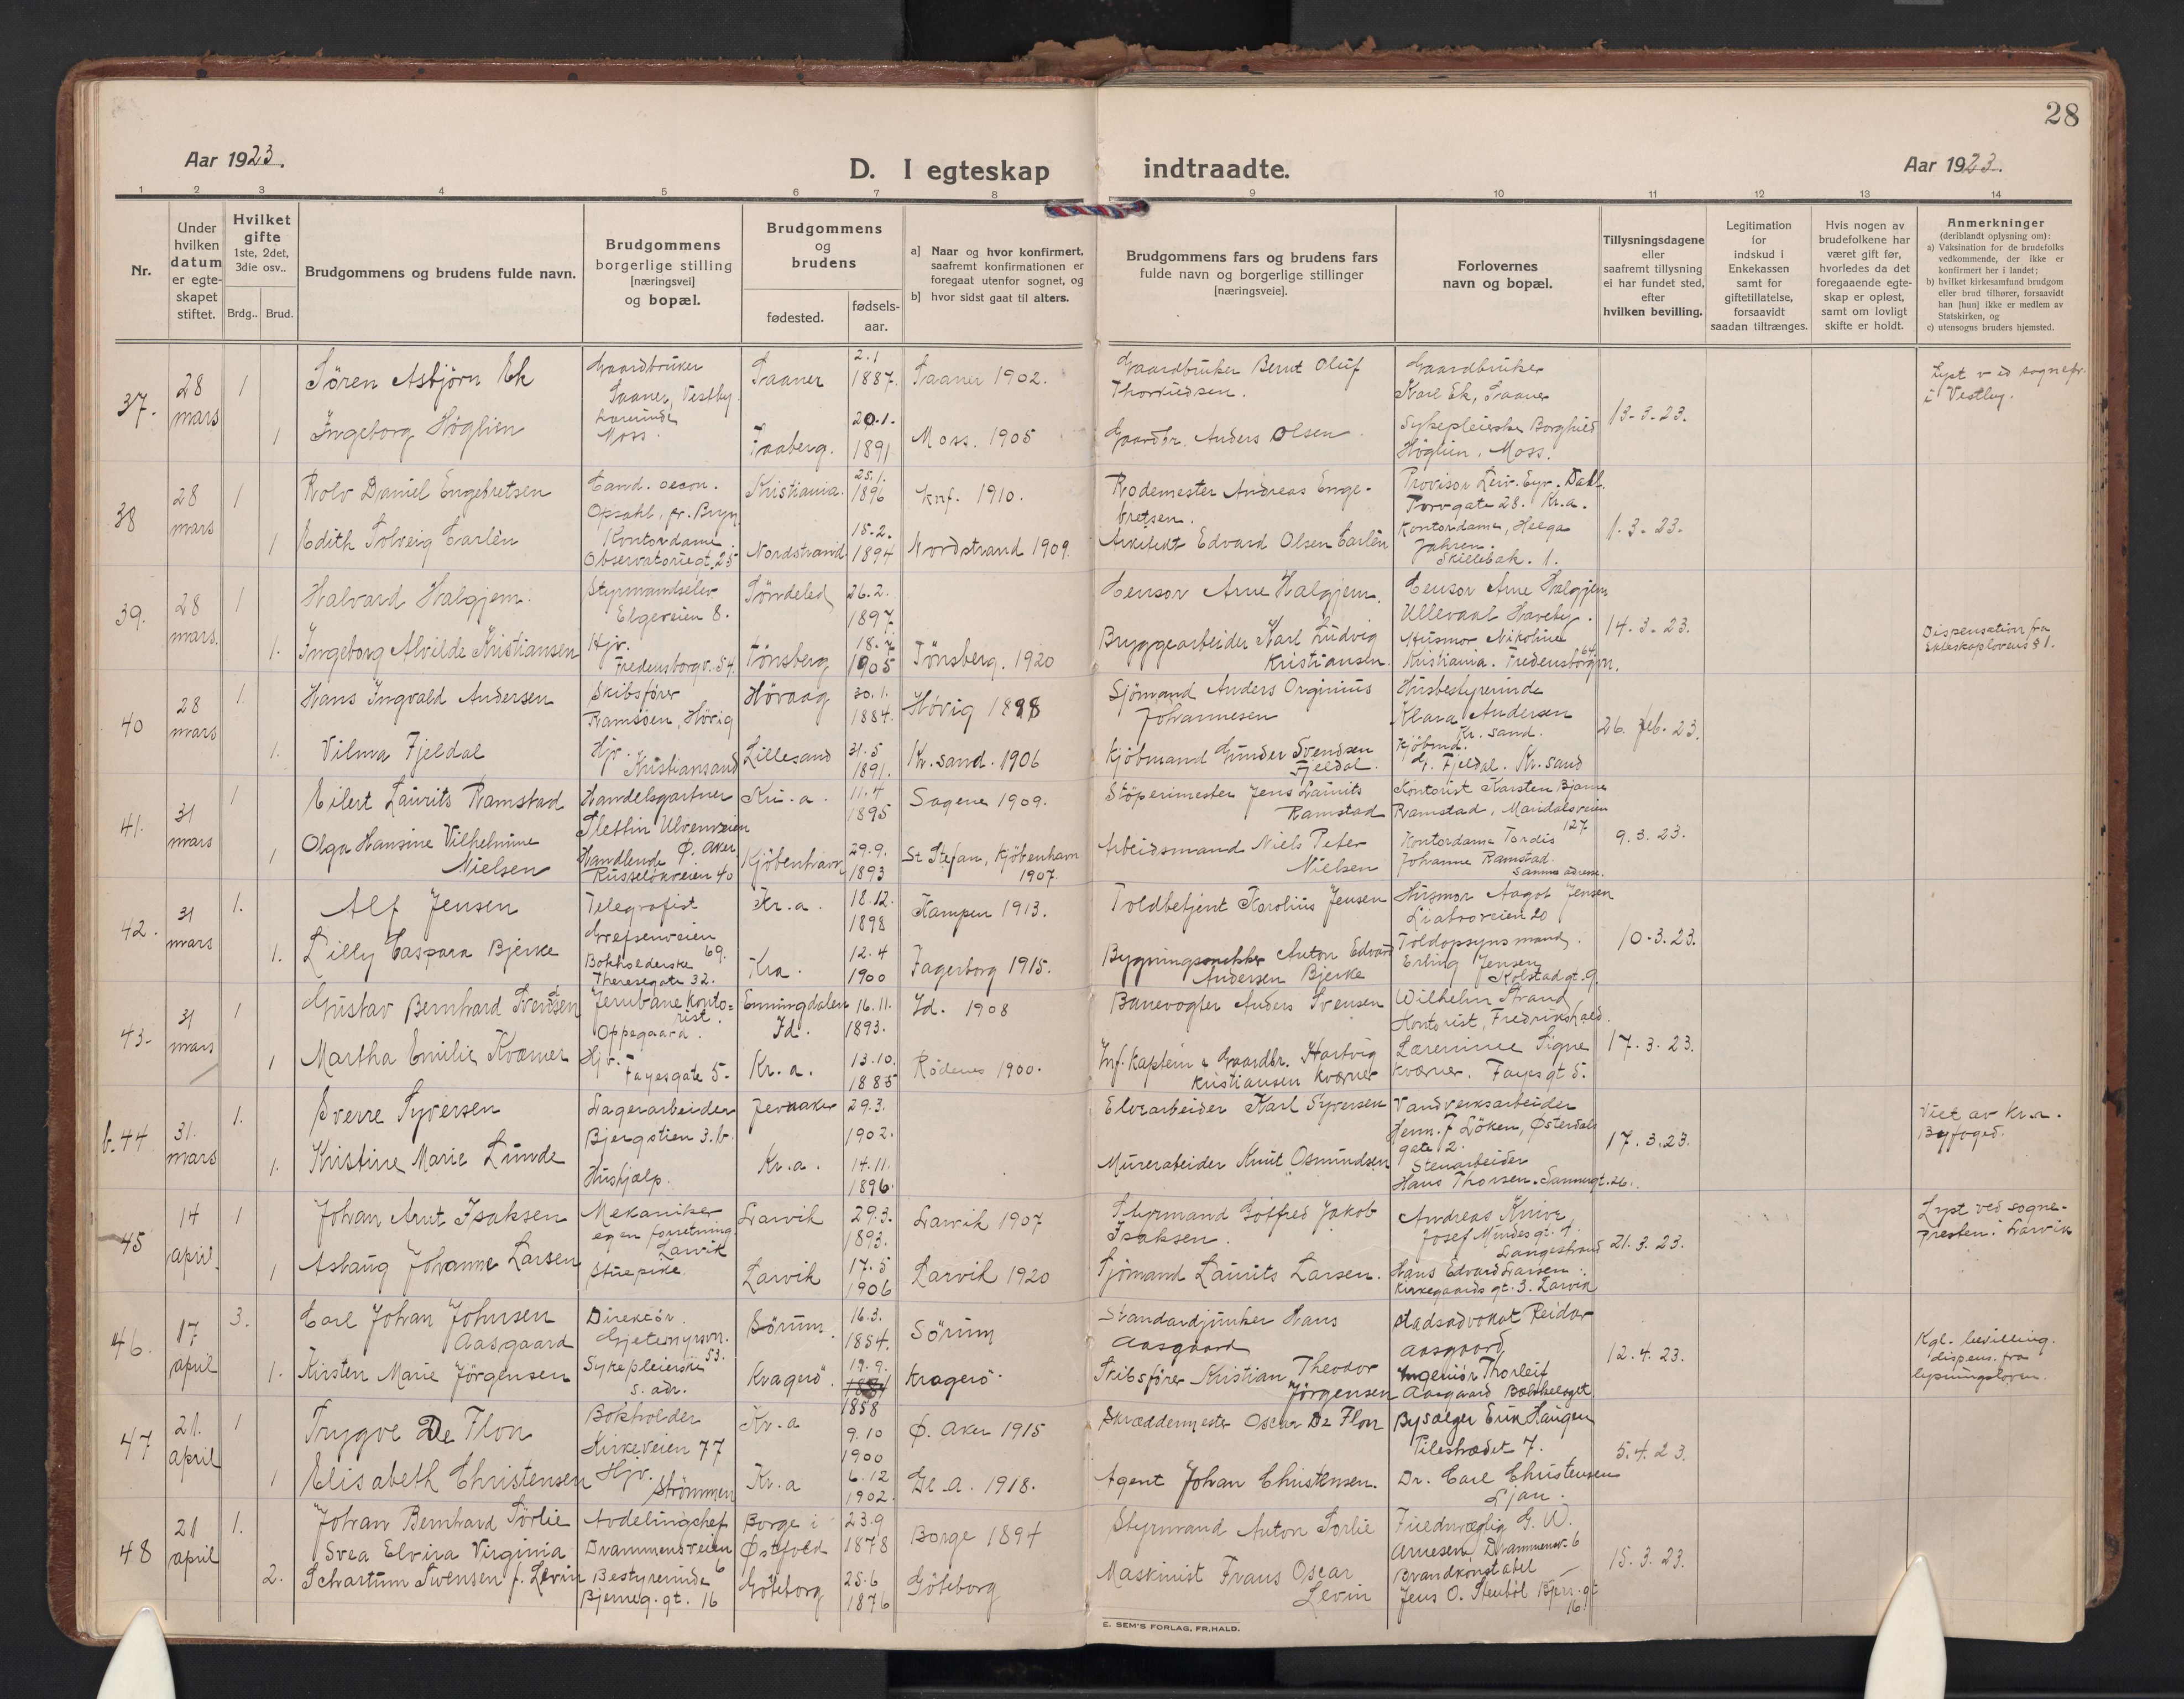 28
Aar 1923.
D. I egteskap indtraadte.
Aar 1923.
1 2 3 4 5 6 7 8 9 10 11 12 13 14
Nr.
Under hvilken datum er egteskapet stiftet.
Hvilket gifte 1ste, 2det, 3die osv..
Brdg.. Brud.
Brudgommens og brudens fulde navn.
Brudgommens borgerlige stilling [næringsvei] og bopæl.
Brudgommens og brudens
fødested. fødsels-aar.
a] Naar og hvor konfirmert, saafremt konfirmationen er foregaat utenfor sognet, og
b] hvor sidst gaat til alters.
Brudgommens fars og brudens fars fulde navn og borgerlige stillinger [næringsveie].
Forlovernes navn og bopæl.
Tillysningsdagene eller saafremt tillysning ei har fundet sted, efter hvilken bevilling.
Legitimation for indskud i Enkekassen samt for giftetillatelse, forsaavidt saadan tiltrænges.
Hvis nogen av brudefolkene har været gift før, hvorledes da det foregaaende egteskap er opløst, samt om lovligt skifte er holdt.
Anmerkninger (deriblandt oplysning om):
a) Vaksination for de brudefolks vedkommende, der ikke er konfirmert her i landet;
b) hvilket kirkesamfund brudgom eller brud tilhører, forsaavidt han [hun] ikke er medlem av Statskirken, og
c) utensogns bruders hjemsted.
37. 28 mars 1 Sören Asbjörn Ek Gaardbruker Saaner, Vestby. Saaner 2.1 1887. Saaner 1902. Gaardbruker Bernt Oluf Gaardbruker Karl Ek, Saaner 13-3-23. Lyst ved sognepr. i Vestby.
1 Ingeborg Höglien Lærerinde Moss. Faaberg. 20.1. 1891 Moss. 1905 Gaardbr. Anders Olsen. Sykepleierske Borghild Höglien. Moss.
38 28 mars 1 Rolv Daniel Engebretsen Cand. oecon. Opsahl, pr. Bryn Kristiania. 25.1. 1896 Knf. 1910. Rodemester Andreas Engebretsen. Provisor Leiv. Eyv. Dahl. Torvgate 28. Kr.a. 1.3-23.
1 Edith Solveig Carlèn Kontordame. Observatoriegt. 25 Nordstrand 15.2. 1894 Nordstrand 1909. Arkitekt Edvard Olsen Carlèn Kontordame, Helga Jahren. Skillebæk. 1.
39. 28 mars. 1 Halvard Halgjem. Styrmandselev Elgeveien 8. Söndeled 26.2. 1897. Censor Arne Halgjem. Censor Arne Halgjem Ullevaal Haveby. 14-3-23. Dispensation fra Ekteskapslovens § 1.
1. Ingeborg Alvilde Kristiansen Hjv. Fredensborgv. 54. Tønsberg 18.7 1905 Tønsberg. 1920 Bryggearbeider Karl Ludvig Kristiansen. Husmor Nikoline Kristiania. Fredensborgvn. 64
40 28 mars 1. Hans Ingvald Andersen Skibsfører Ramsöen, Hövig Høvaag 30.1. 1884. Høvig 1898 Sjömand Anders Orginius Johannesen Husbestyrerinde Klara Andersen Kr. sand. 26. feb. 23.
1. Vilma Fjeldal Hjv. Kristiansand Lillesand 31.5 1891. Kr. sand. 1906 Kjöbmand Gunder Svendsen Fjeldal. Kjöbmd. G. Fjeldal. Kr. sand
41. 31 mars 1 Eilert Laurits Ramstad Handelsgartner Ulvenveien Ø. Aker Kr.a. 11.4 1895 Sagene 1909. Stöperimester Jens Laurits Ramstad Kontorist Karsten Bjarne Ramstad, Maridalsveien 127 9.3.23.
1 Olga Hansine Vilhelmine Nielsen Handlende Russelökveien 40 Kjöbenhavn 29.9. 1893 St Stefan, Kjöbenhavn 1907. Arbeidsmand Niels Peter Nielsen Kontordame Tordis Johanne Ramstad. Samme adresse.
42. 31 mars 1. Alf Jensen Telegrafist Grefsenveien 69. Kr.a. 18.12. 1898 Kampen 1913. Toldbetjent Karolius Jensen Husmor Aagot Jensen Liabroveien 20 10-3.23.
1. Lilly Caspara Bjerke Bokholderske Theresegate 32. Kra. 12.4 1900 Fagerborg 1915. Anton Edvard Andersen Bjerke Toldopsynsmand Erling Jensen Kolstadgt. 9.
43. 31 mars 1 Gustav Bernhard Svendsen Jernbanekontorist. Oppegaard. Enningdalen Id. 16.11. 1893. Id. 1908 Banevogter Anders Svensen Wilhelm Strand Kontorist, Fredrikshald. 17.3.23.
1 Martha Emilie Kværner Hjv. Fayesgate 5. Kr.a. 13.10. 1885 Rödenes 1900. Inf. Kaptein & Gaardbr. Hartvig Kristiansen Kværner Lærerinne Signe Kværner. Fayesgt 5.
b.44 31. mars 1. Sverre Syversen Lagerarbeider Bjergstien 3.b. Jevnaker 29.3. 1902. Elvearbeider Karl Syversen Vandverksarbeider Herm. F Löken, Østerdals gate 2. 17.3.23. Viet av Kr.a. Byfoged.
1. Kristine Marie Lunde Hushjælp. Kr.a. 14.11. 1896. Murerabeider Knut Osmundsen Stenarbeider Hans Thorsen. Sannergt. 26.
45 14 april. 1 Johan Arnt Isaksen Mekaniker egen forretning Larvik Larvik 29.3. 1893. Larvik 1907 Styrmand Gotfred Jakob Isaksen. Andreas Josef Mindes gt. 9. Langestrand 21.3.23. Lyst ved sognepresten i Larvik
1 Aslaug Johanne Larsen Stuepike. Larvik 17.5 1906 Larvik 1920 Sjömand Laurits Larsen. Hans Edvard Larsen. Kirkegaards gt. 3. Larvik
46. 17 april 3. Carl Johan Johnsen Aasgaard Direktör. Gjetemyrsvn. 53. Sörum. 16.3. 1854. Sörum Standardjunker Hans Aasgaard Stadsadvokat Reidar Aasgaard 12.4.23. Kgl. bevilling. dispens. fra lysningsloven.
1. Kirsten Marie Jörgensen Sykepleierske s. adr. Kragerö. 19.9. 1858 Kragerö. Skibsfører Kristian Theodor Jörgensen Ingeniör Thorleif Aasgaard
47 21. april 1 Trygve De Flon Bokholder Kirkeveien 77 Kr.a 9.10 1900 Ø. Aker 1915 Skræddermester Oscar De Flon Bysælger Erik Haugen Pilestrædet 7. 5.4.23.
1 Elisabeth Christensen Hjv. Strömmen Kr.a 6.12 1902. Gl. A. 1918. Agent Johan Christensen. Dr. Carl Christensen Ljan.
48 21 april 1. Johan Bernhard Sörlie Avdelingschef Drammensveien 6 Borge i Østfold 23.9 1878 Borge 1894 Styrmand Anton Sörlie G. W. Arnesen Drammensv. 6 15.3.23.
2. Svea Elvira Virginia Schartum Svensen f. Levin Bestyrerinde Bjerreg. gt. 16 Göteborg 25.6 1876 Göteborg Maskinist Frans Oscar Levin Brandkonstabel Jens O. Stenböl Bjerr. gt 16.
E. SEM'S FORLAG, FR.HALD.